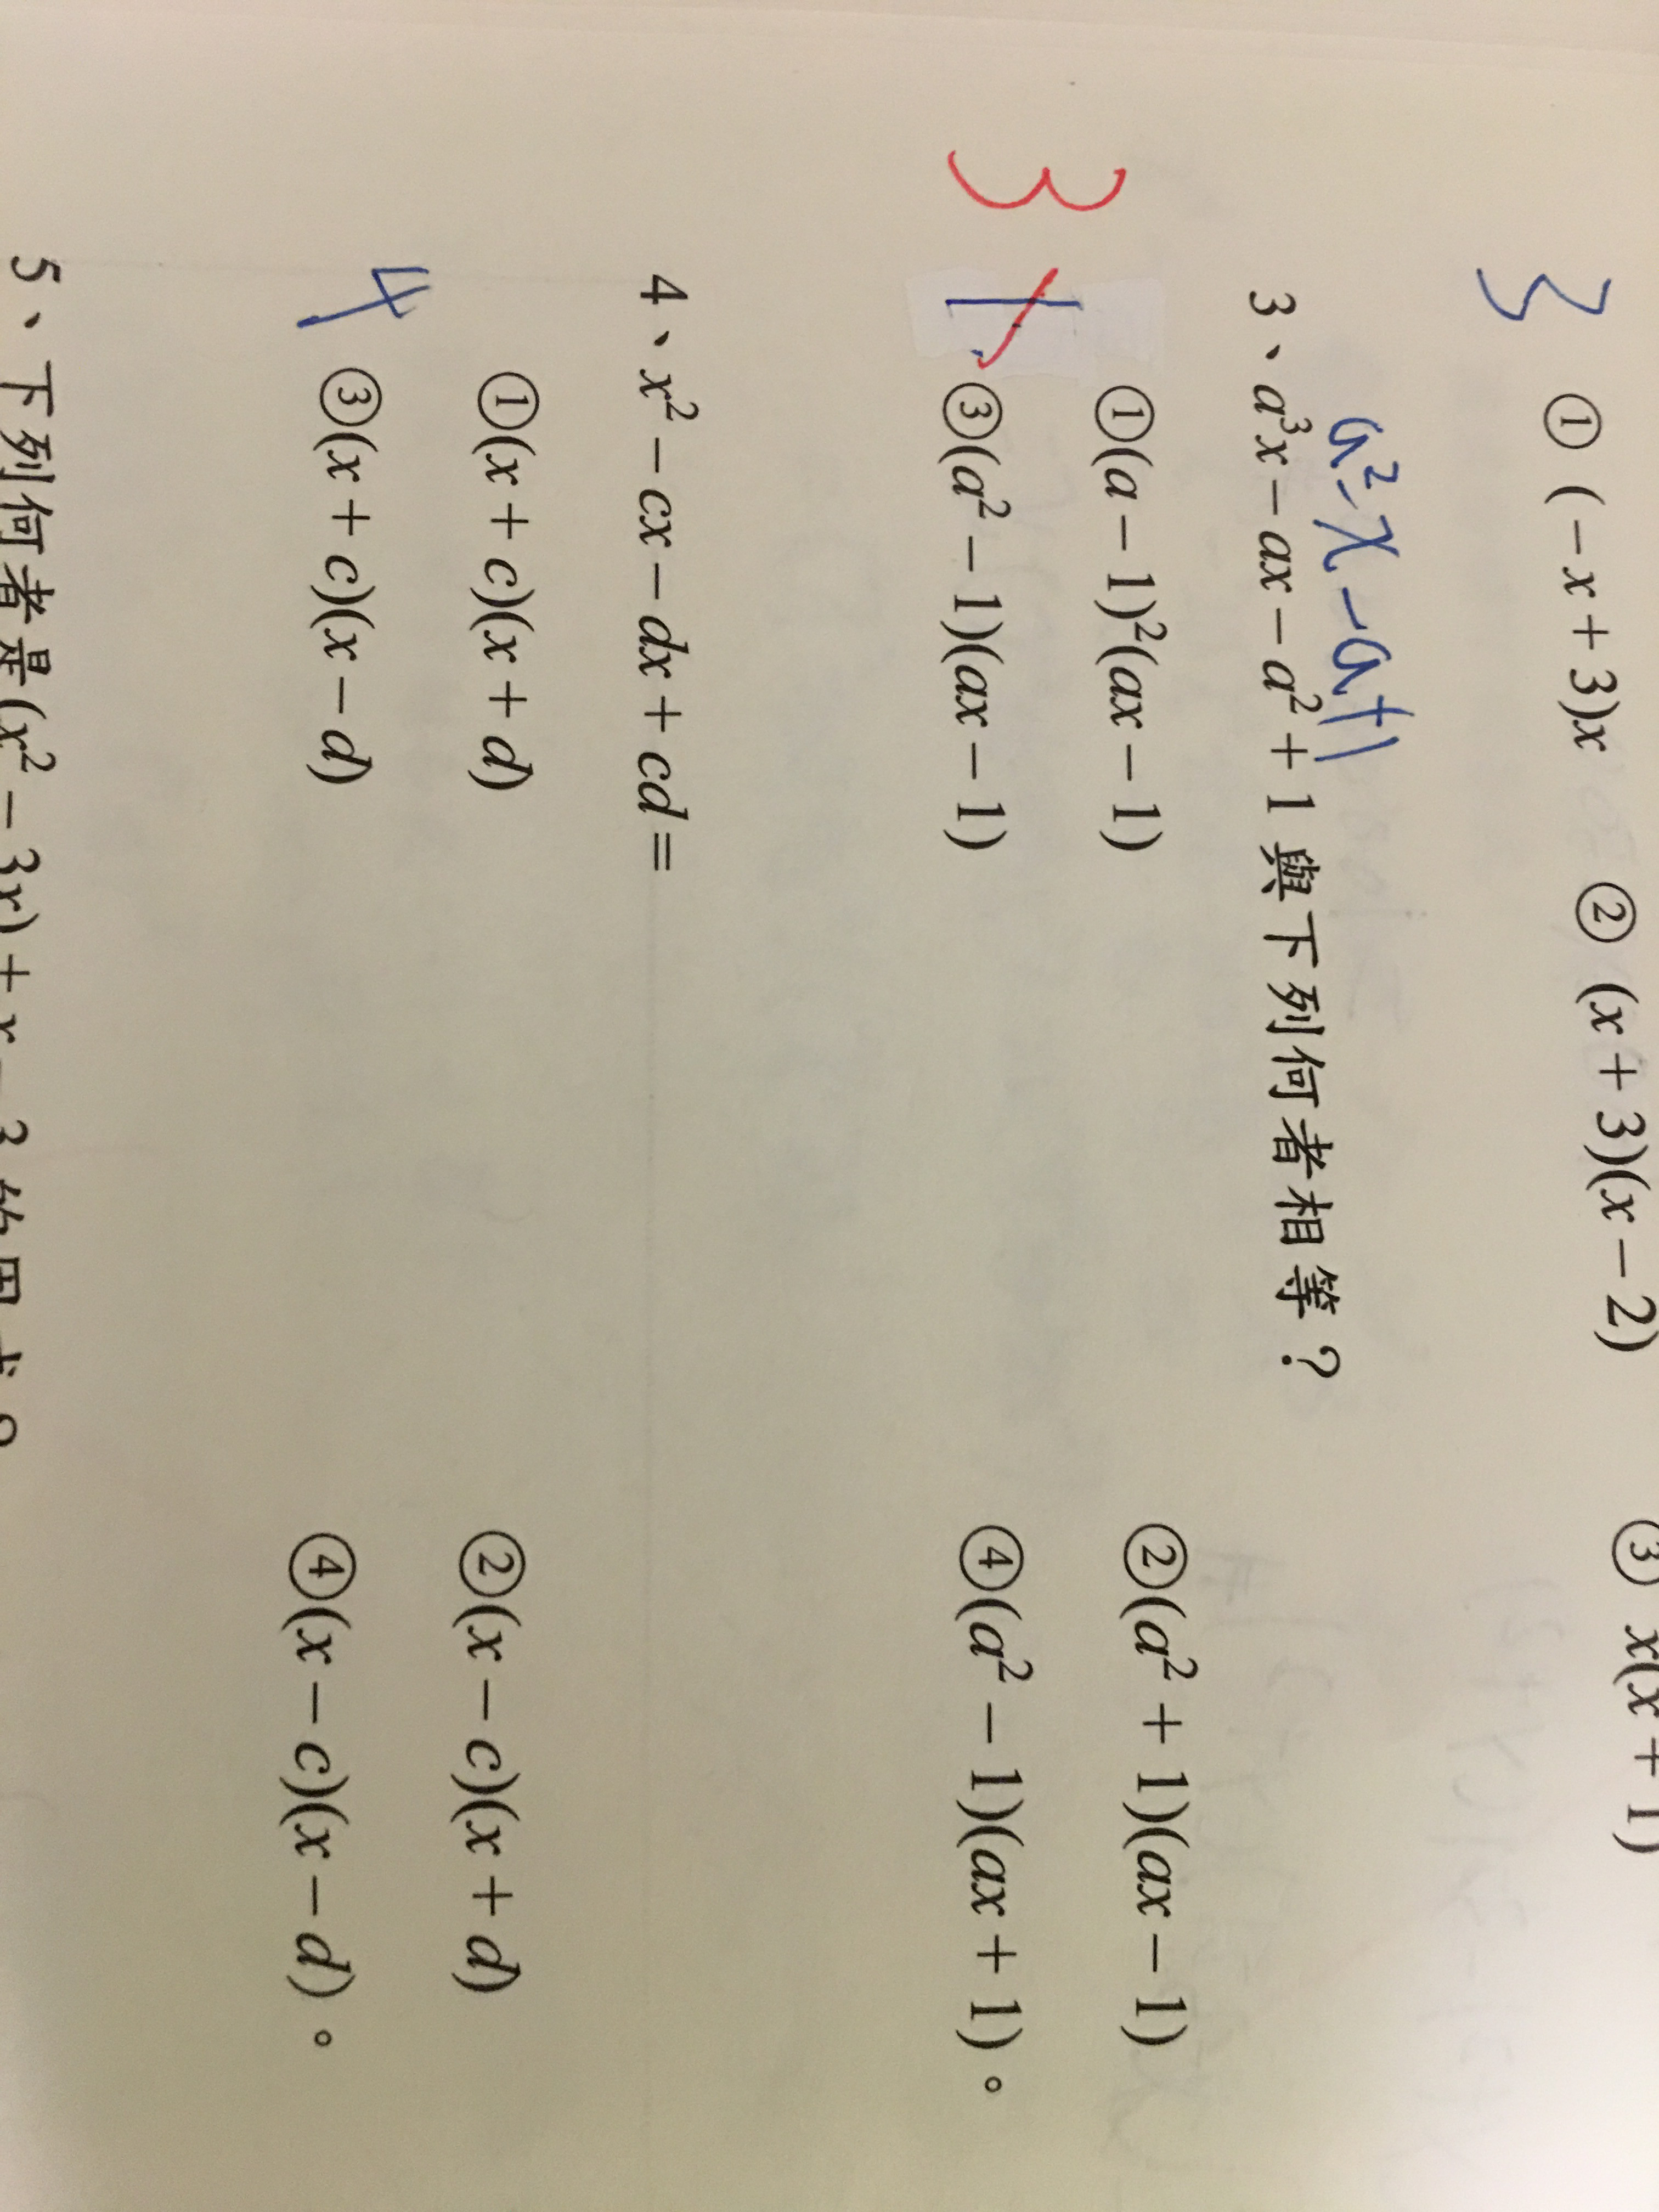 3 ① (−x+3)x ② (x+3)(x−2) ③ x(x+1)
a²x−a+1
3、a³x−ax−a²+1 與下列何者相等？
3 ①(a−1)²(ax−1) ②(a²+1)(ax−1)
1 ③(a²−1)(ax−1) ④(a²−1)(ax+1)。
4、x²−cx−dx+cd=
①(x+c)(x+d) ②(x−c)(x+d)
4 ③(x+c)(x−d) ④(x−c)(x−d)。
5、下列何者是(x²−3x)+x−3的因式？